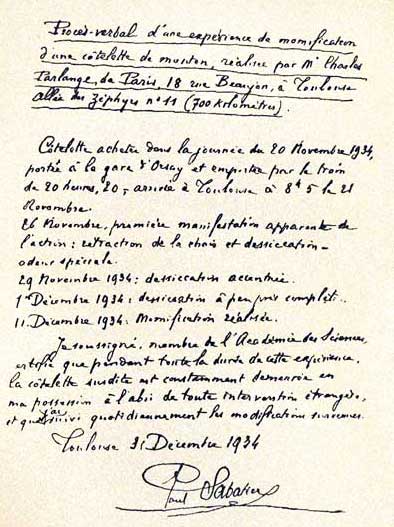 Procès-verbal d'une expérience de momification
d'une côtelette de mouton, réalisée par Mr Charles
Parlange, de Paris, 18 rue Beaujon, à Toulouse
allée des Zéphyrs n° 11 (700 kilomètres).
Côtelette achetée dans la journée du 20 Novembre 1934,
portée à la gare d'Orsay et emportée par le train
de 20 heures, 20, arrivée à Toulouse à 8h 5 le 21
Novembre.
26 Novembre, première manifestation apparente de
l'action : rétraction de la chair et dessiccation -
odeur spéciale.
29 Novembre 1934 : dessiccation accentuée.
1er Décembre 1934 : dessiccation à peu près complète.
11 Décembre 1934 : Momification réalisée.
Je soussigné, membre de l'Académie des Sciences,
certifie que pendant toute la durée de cette expérience,
la côtelette susdite est constamment demeurée en
ma possession à l'abri de toute intervention étrangère,
et que j'ai suivi quotidiennement les modifications survenues.
Toulouse 31 Décembre 1934
Paul Sabatier